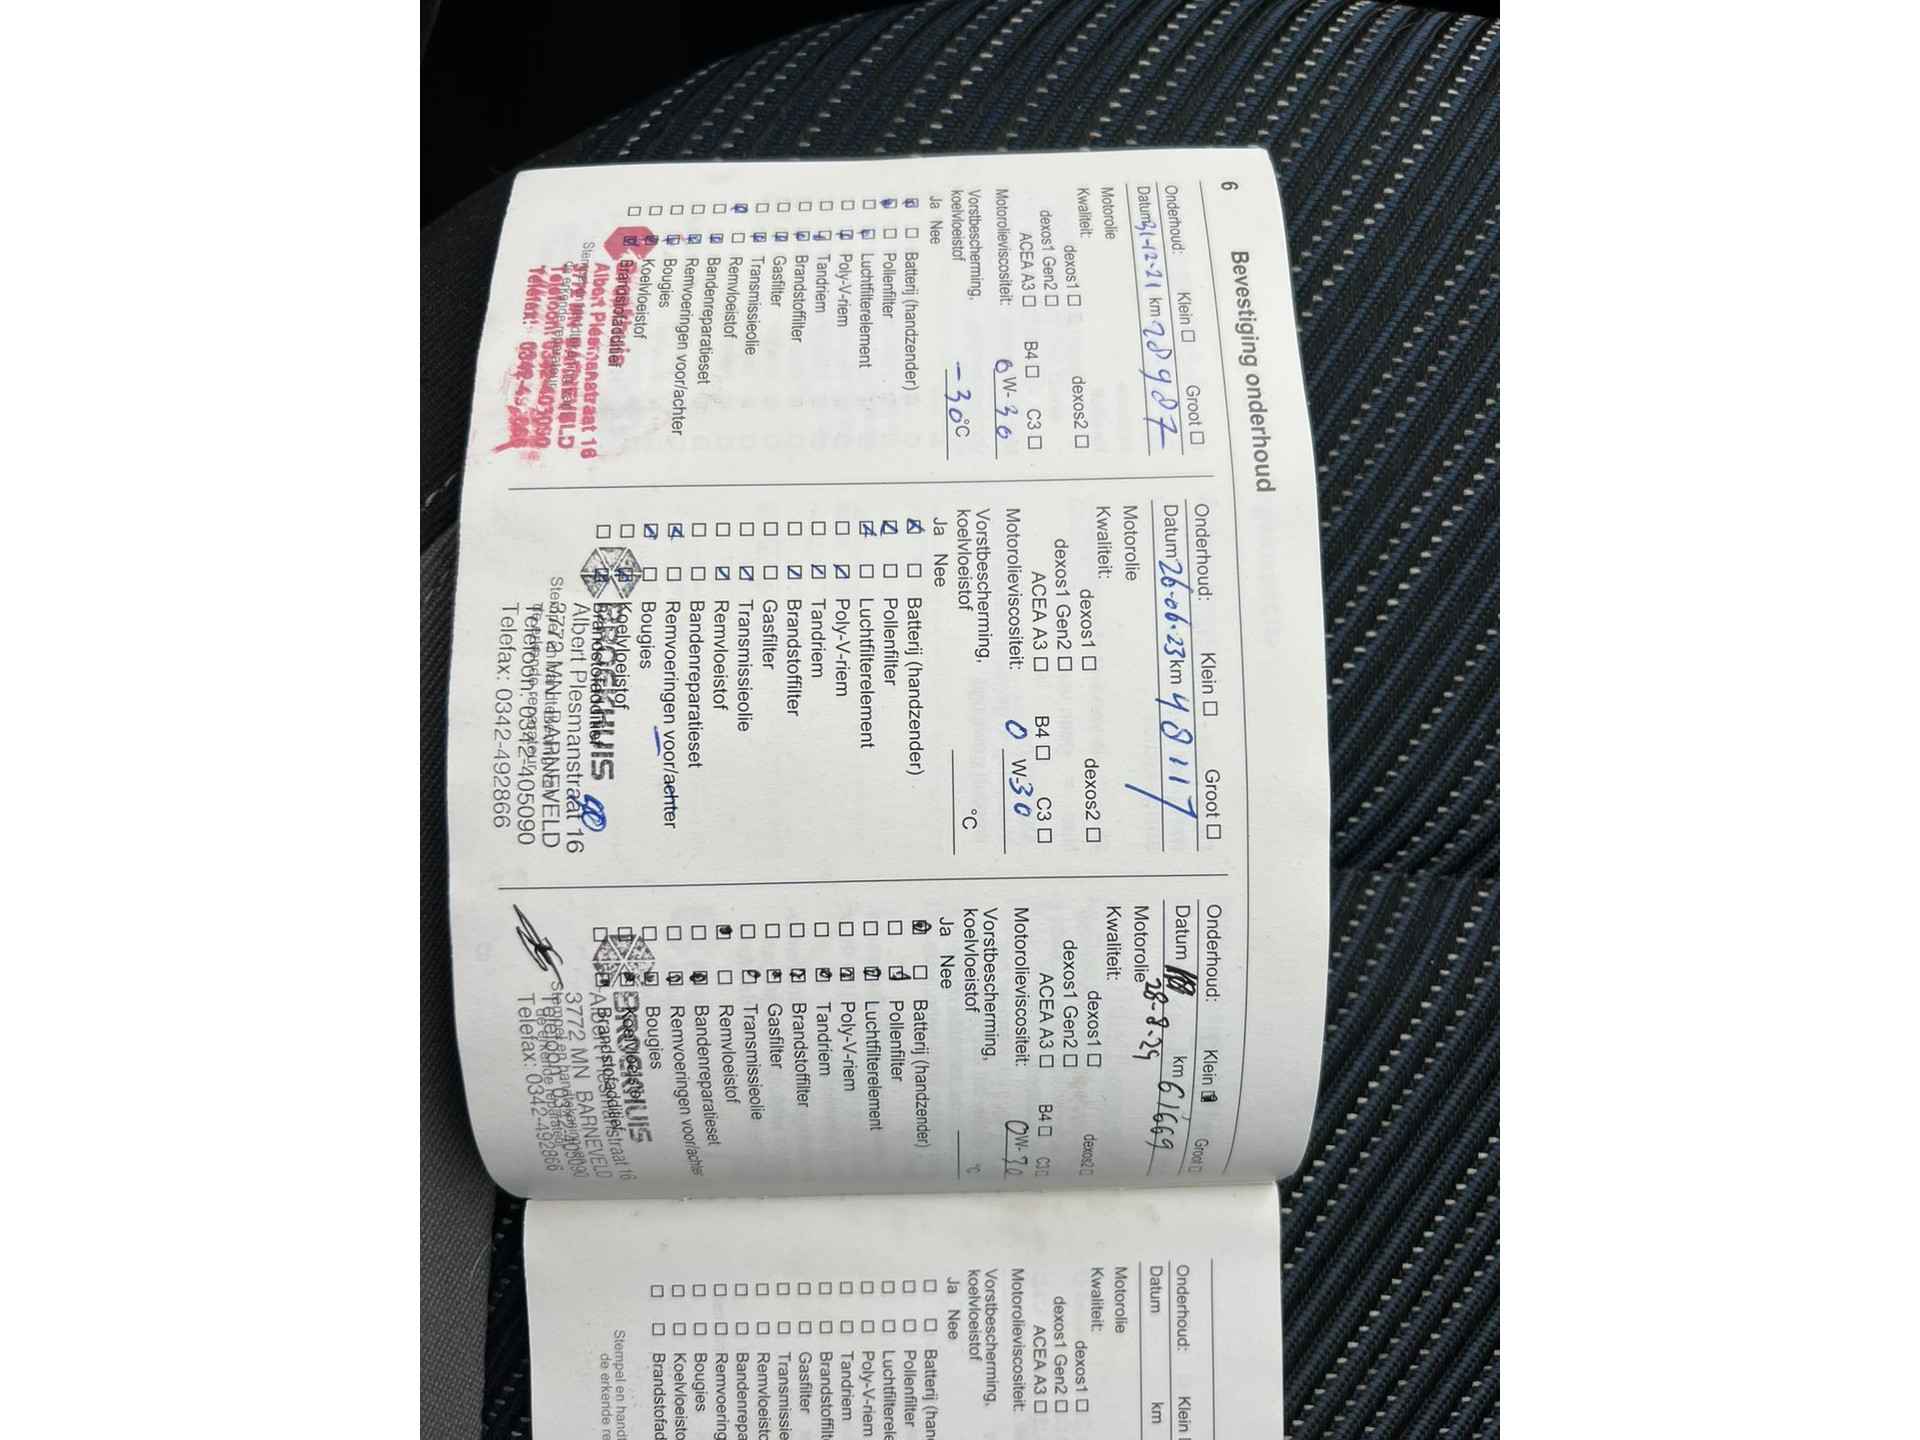 6
Bevestiging onderhoud
Onderhoud: Klein ☐ Groot ☐
Datum 31-12-21 km 28987
Motorolie
Kwaliteit: dexos1 ☐ dexos2 ☐
dexos1 Gen2 ☐
ACEA A3 ☐ B4 ☐ C3 ☐
Motorolieviscositeit: 0 W-30
Vorstbescherming,
koelvloeistof -30 °C
Ja Nee
Batterij (handzender)
Pollenfilter
Luchtfilterelement
Poly-V-riem
Tandriem
Brandstoffilter
Gasfilter
Transmissieolie
Remvloeistof
Bandenreparatieset
Remvoeringen voor/achter
Bougies
Koelvloeistof
Brandstofadditief
Albert Plesmanstraat 16
3772 MN BARNEVELD
Telefoon: 0342-405090
Telefax: 0342-492866
Onderhoud: Klein ☐ Groot ☐
Datum 26-06-23 km 48117
Motorolie
Kwaliteit: dexos1 ☐ dexos2 ☐
dexos1 Gen2 ☐
ACEA A3 ☐ B4 ☐ C3 ☐
Motorolieviscositeit: 0 W-30
Vorstbescherming,
koelvloeistof °C
Ja Nee
Batterij (handzender)
Pollenfilter
Luchtfilterelement
Poly-V-riem
Tandriem
Brandstoffilter
Gasfilter
Transmissieolie
Remvloeistof
Bandenreparatieset
Remvoeringen voor/achter
Bougies
Koelvloeistof
Brandstofadditief
BROEKHUIS
Albert Plesmanstraat 16
3772 MN BARNEVELD
Telefoon: 0342-405090
Telefax: 0342-492866
Onderhoud: Klein ☒ Groot ☐
Datum 28-8-24 km 61669
Motorolie
Kwaliteit: dexos1 ☐ dexos2 ☐
dexos1 Gen2 ☐
ACEA A3 ☐ B4 ☐ C3 ☐
Motorolieviscositeit: 0W-30
Vorstbescherming,
koelvloeistof °C
Ja Nee
Batterij (handzender)
Pollenfilter
Luchtfilterelement
Poly-V-riem
Tandriem
Brandstoffilter
Gasfilter
Transmissieolie
Remvloeistof
Bandenreparatieset
Remvoeringen voor/achter
Bougies
Koelvloeistof
Brandstofadditief
BROEKHUIS
Albert Plesmanstraat 16
3772 MN BARNEVELD
Telefoon: 0342-405090
Telefax: 0342-492866
Onderhoud: Klein
Datum km
Motorolie
Kwaliteit: dexos1 ☐
dexos1 Gen2 ☐
ACEA A3 ☐
Motorolieviscositeit:
Vorstbescherming,
koelvloeistof
Ja Nee
Batterij (han
Pollenfilter
Luchtfiltere
Poly-V-riem
Tandriem
Brandstoffilt
Gasfilter
Transmissie
Remvloeisto
Bandenrepa
Remvoering
Bougies
Koelvloeisto
Brandstofad
Stempel en handt
de erkende re